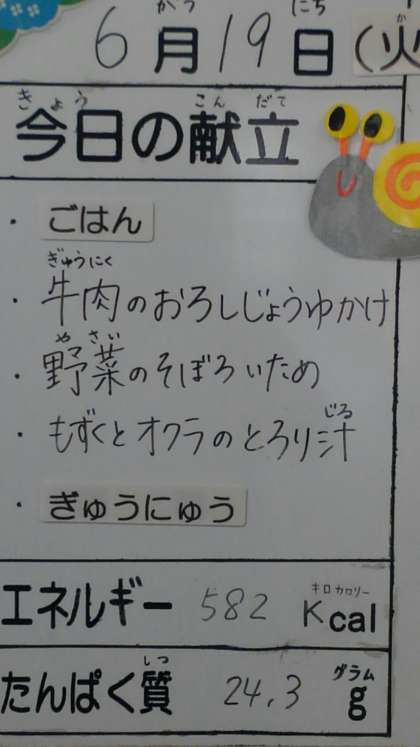 がつ にち か
6月19日(火
きょう こんだて
今日の献立
・ ごはん
ぎゅうにく
・ 牛肉のおろしじょうゆかけ
やさい
・ 野菜のそぼろいため
じる
・ もずくとオクラのとろり汁
・ ぎゅうにゅう
キロカロリー
エネルギー 582 Kcal
しつ グラム
たんぱく質 24.3 g